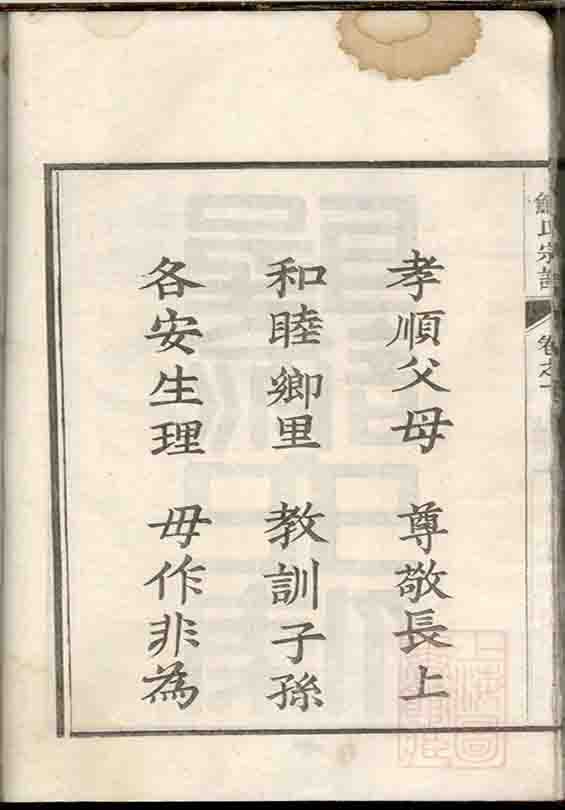 孝順父母 尊敬長上
和睦鄉里 教訓子孫
各安生理 毋作非為
氏宗譜 卷之